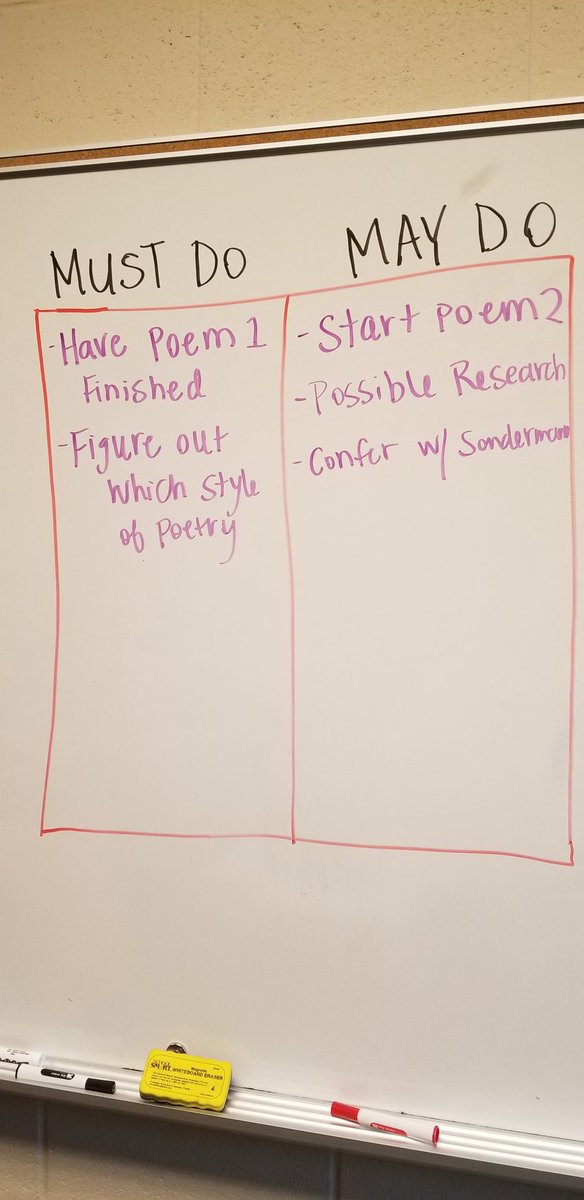 MUST DO
-Have Poem 1
Finished
-Figure out
which style
of Poetry
MAY DO
-Start poem 2
-Possible Research
-Confer w/ Sondermann
SCHOOL SMART
Magnetic
WHITEBOARD ERASER